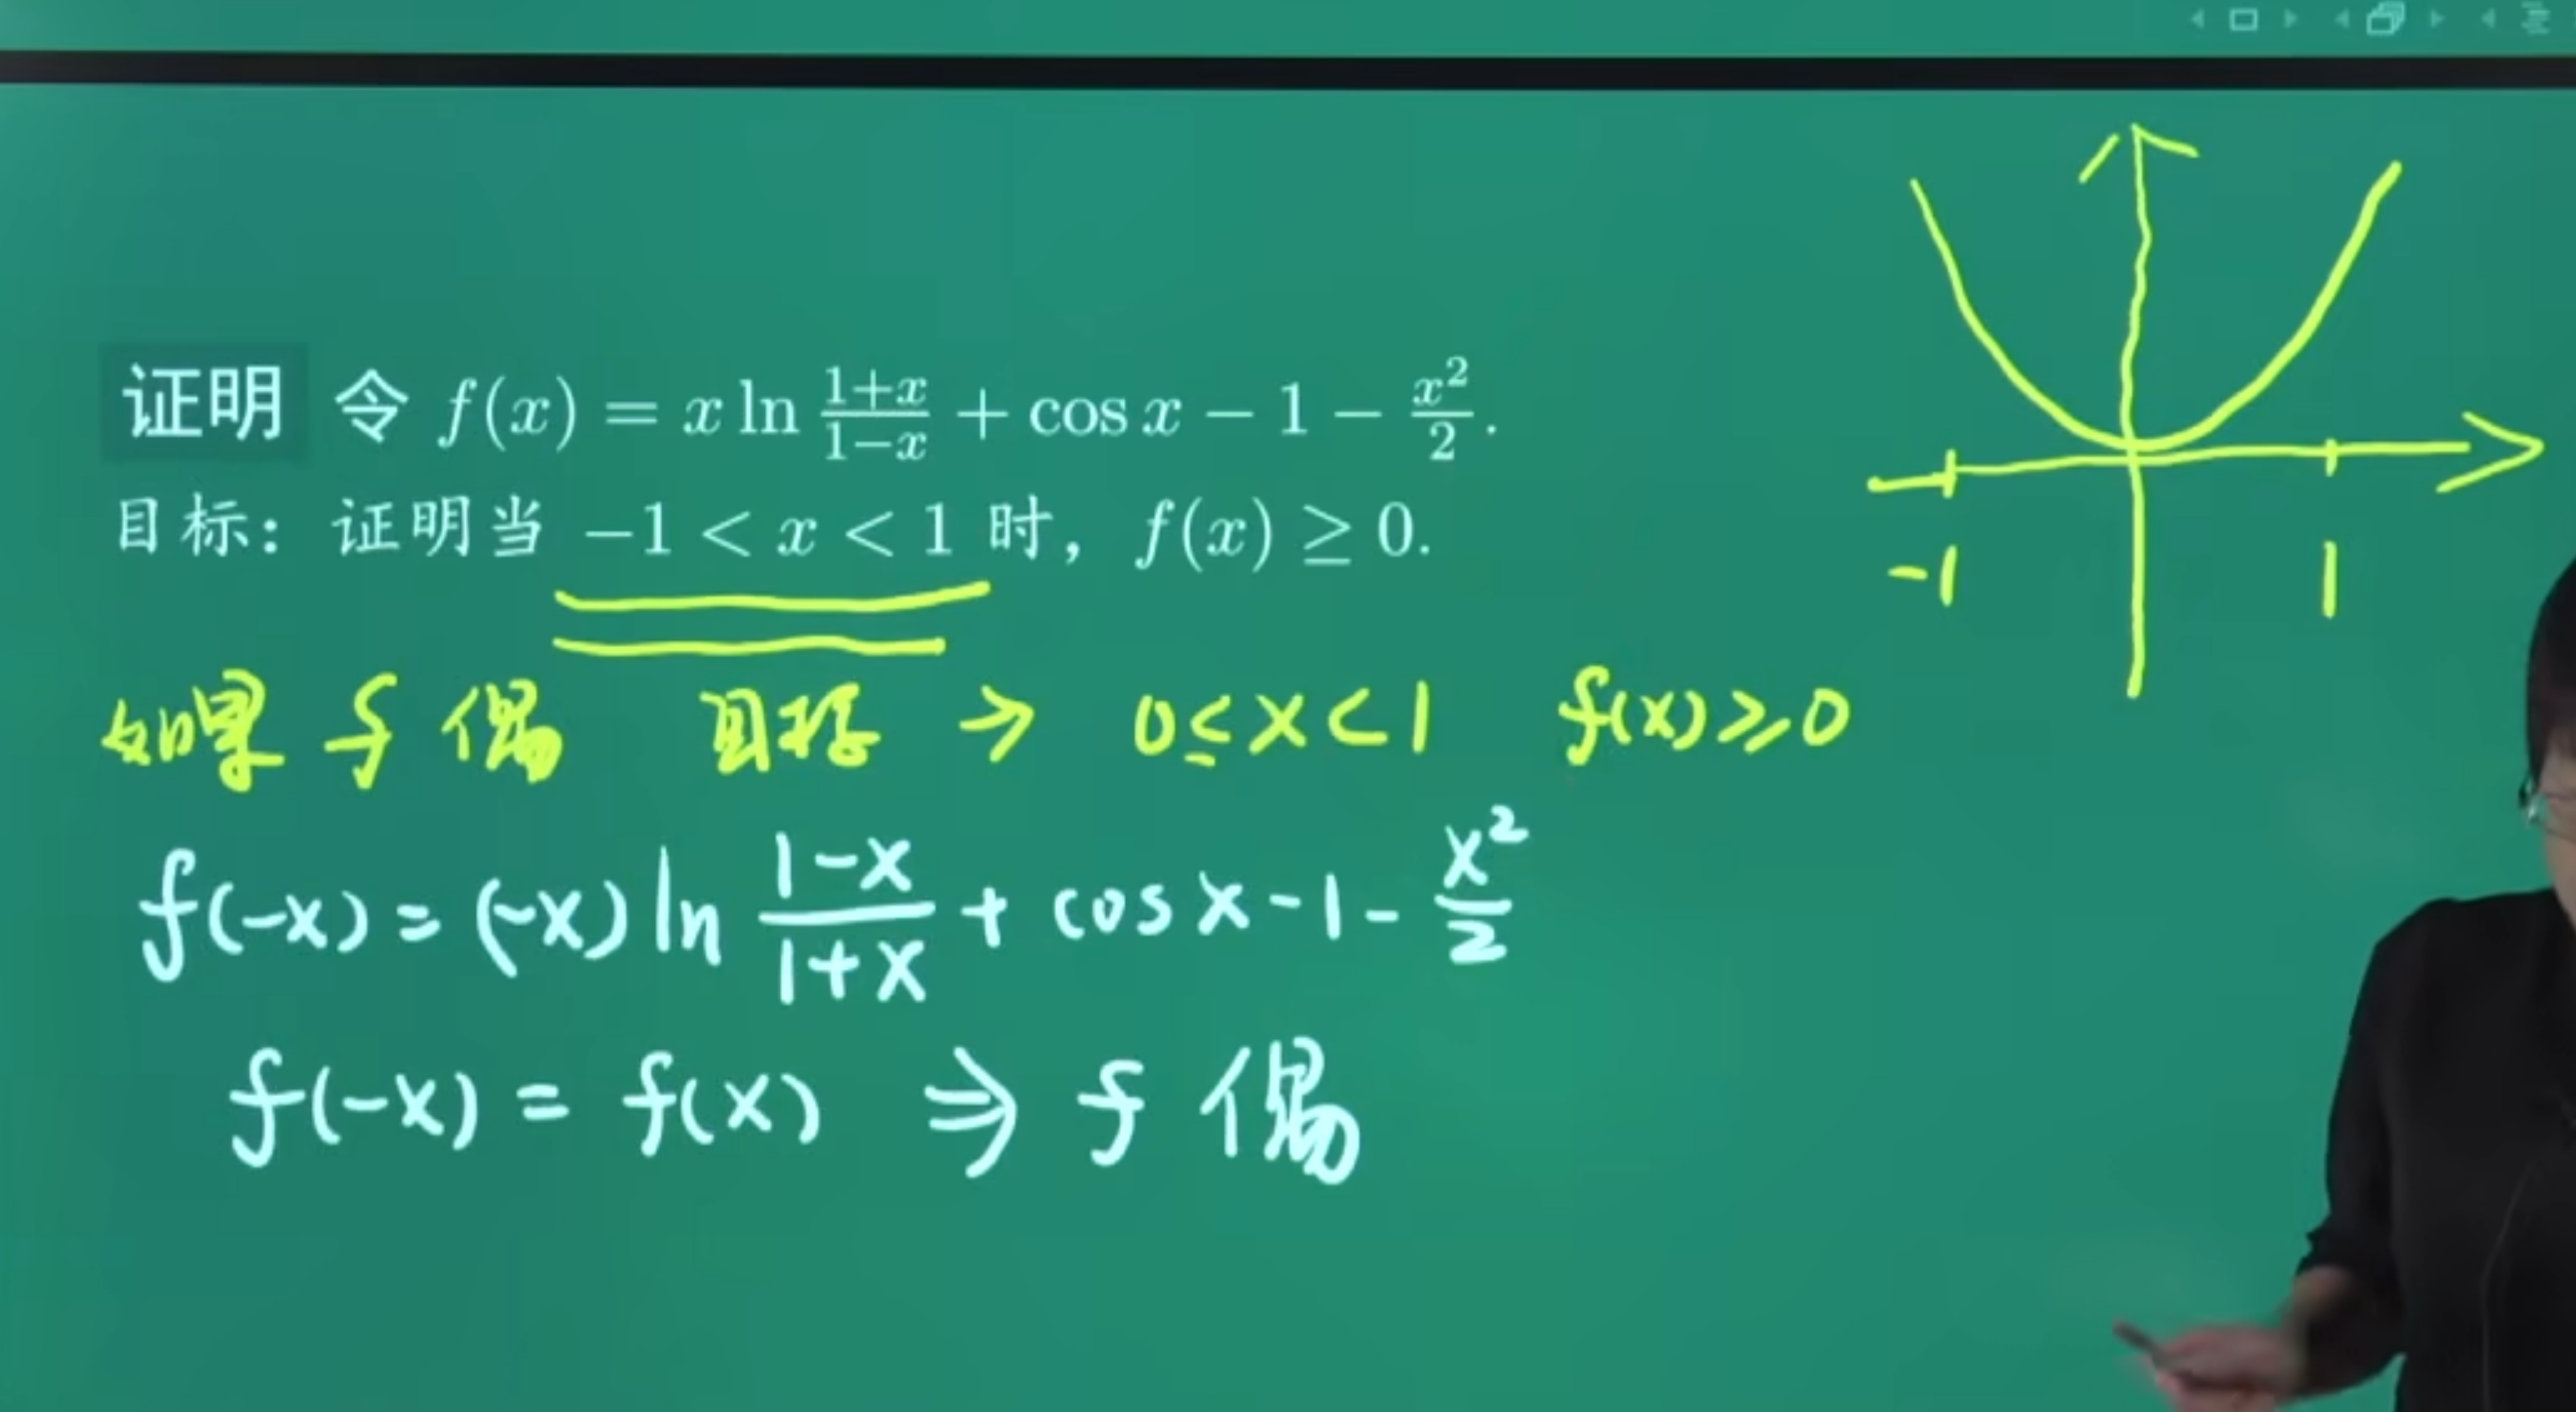 证明 令 f(x) = x ln (1+x)/(1−x) + cos x − 1 − x²/2.
目标：证明当 −1 < x < 1 时，f(x) ≥ 0.
-1 1
如果 f 偶 目标 → 0≤x<1 f(x)≥0
f(-x) = (-x) ln (1-x)/(1+x) + cos x - 1 - x²/2
f(-x) = f(x) ⇒ f 偶